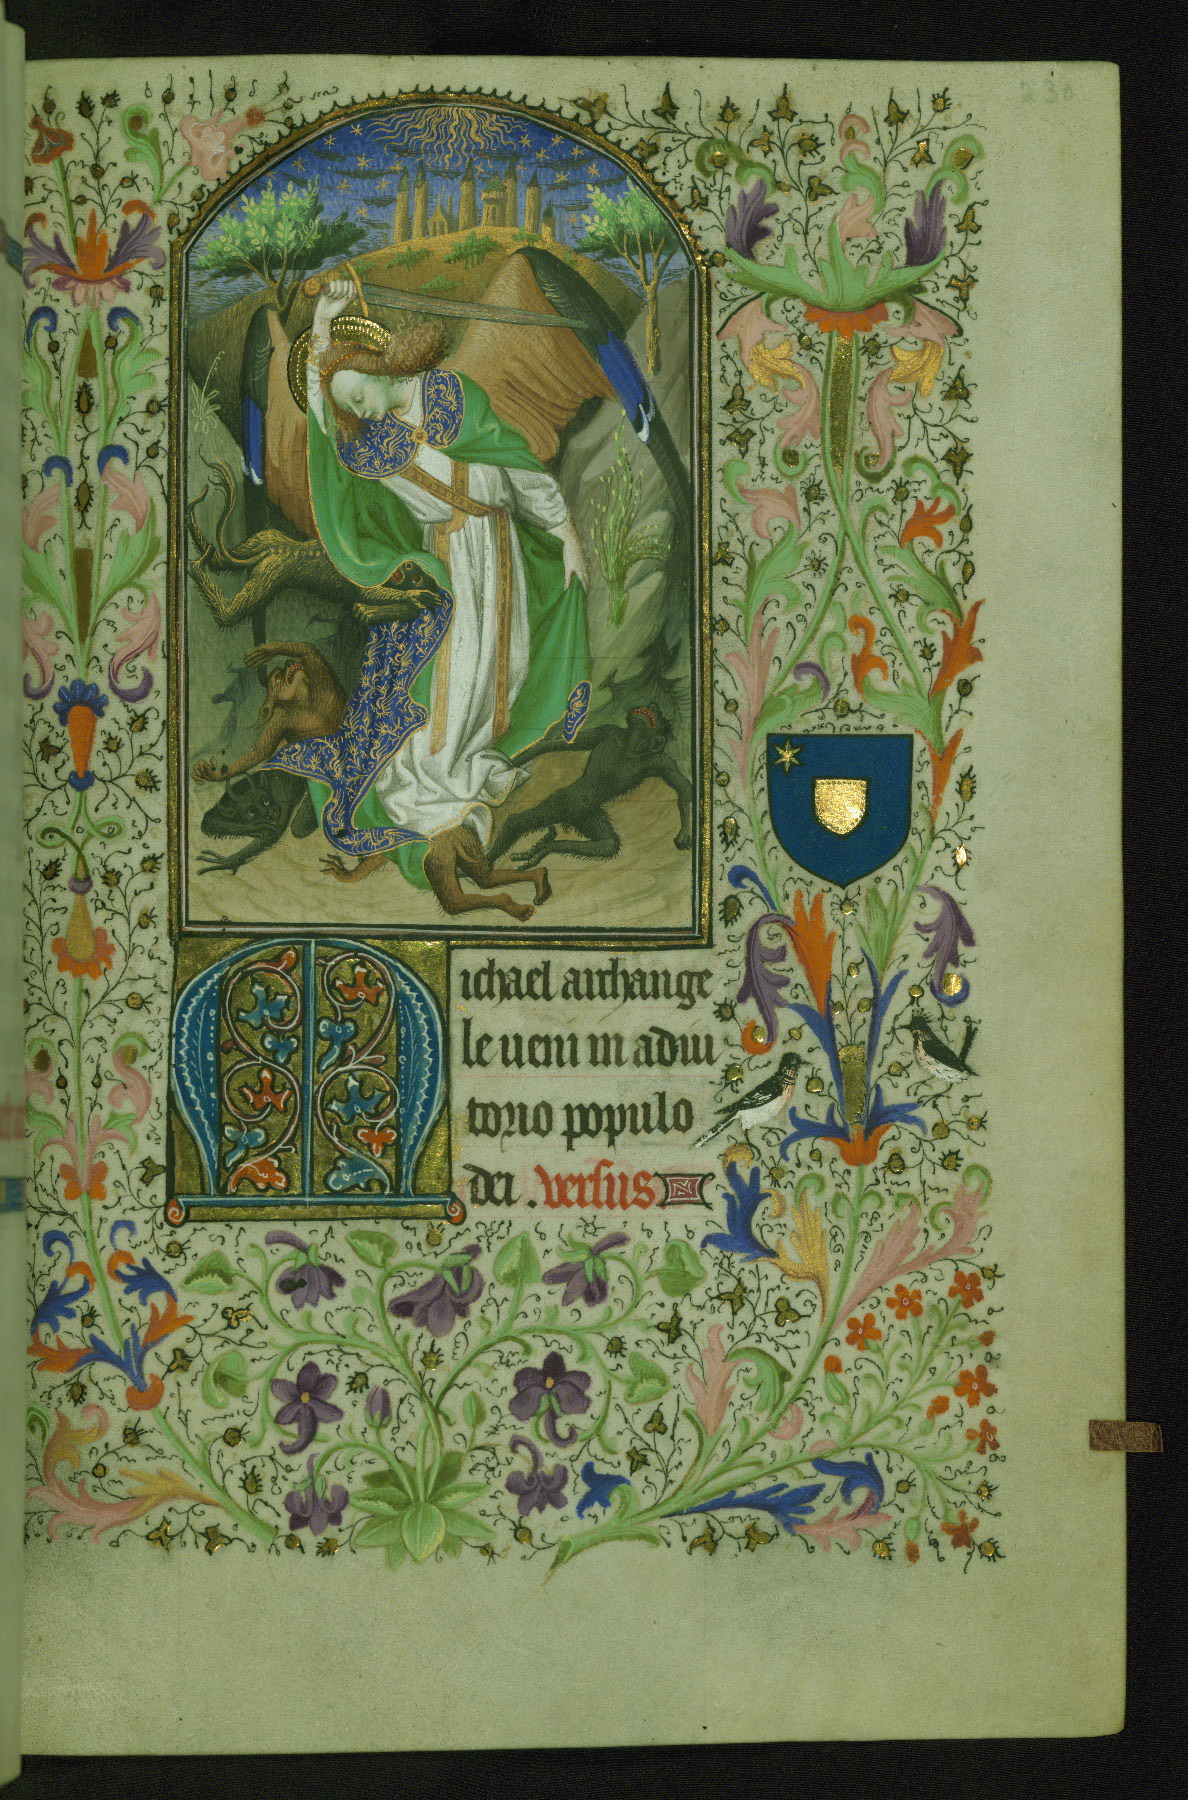 Michael archange
le veni in adiu
torio populo
dei . versus